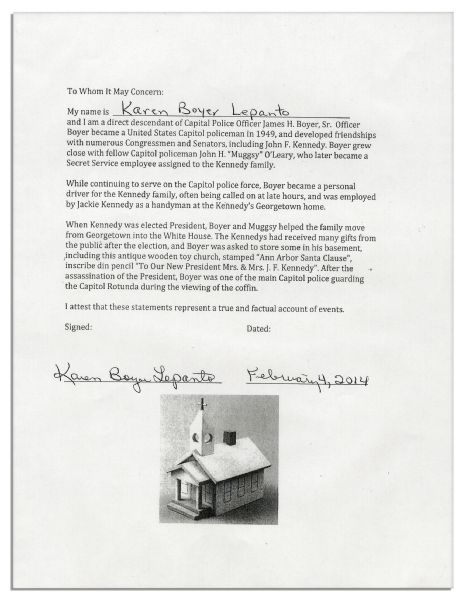 To Whom It May Concern:
My name is Karen Boyer Lepanto
and I am a direct descendant of Capital Police Officer James H. Boyer, Sr. Officer
Boyer became a United States Capitol policeman in 1949, and developed friendships
with numerous Congressmen and Senators, including John F. Kennedy. Boyer grew
close with fellow Capitol policeman John H. "Muggsy" O'Leary, who later became a
Secret Service employee assigned to the Kennedy family.
While continuing to serve on the Capitol police force, Boyer became a personal
driver for the Kennedy family, often being called on at late hours, and was employed
by Jackie Kennedy as a handyman at the Kennedy's Georgetown home.
When Kennedy was elected President, Boyer and Muggsy helped the family move
from Georgetown into the White House. The Kennedys had received many gifts from
the public after the election, and Boyer was asked to store some in his basement,
including this antique wooden toy church, stamped "Ann Arbor Santa Clause",
inscribe din pencil "To Our New President Mrs. & Mrs. J. F. Kennedy". After the
assassination of the President, Boyer was one of the main Capitol police guarding
the Capitol Rotunda during the viewing of the coffin.
I attest that these statements represent a true and factual account of events.
Signed: Dated:
Karen Boyer Lepanto February 4, 2014